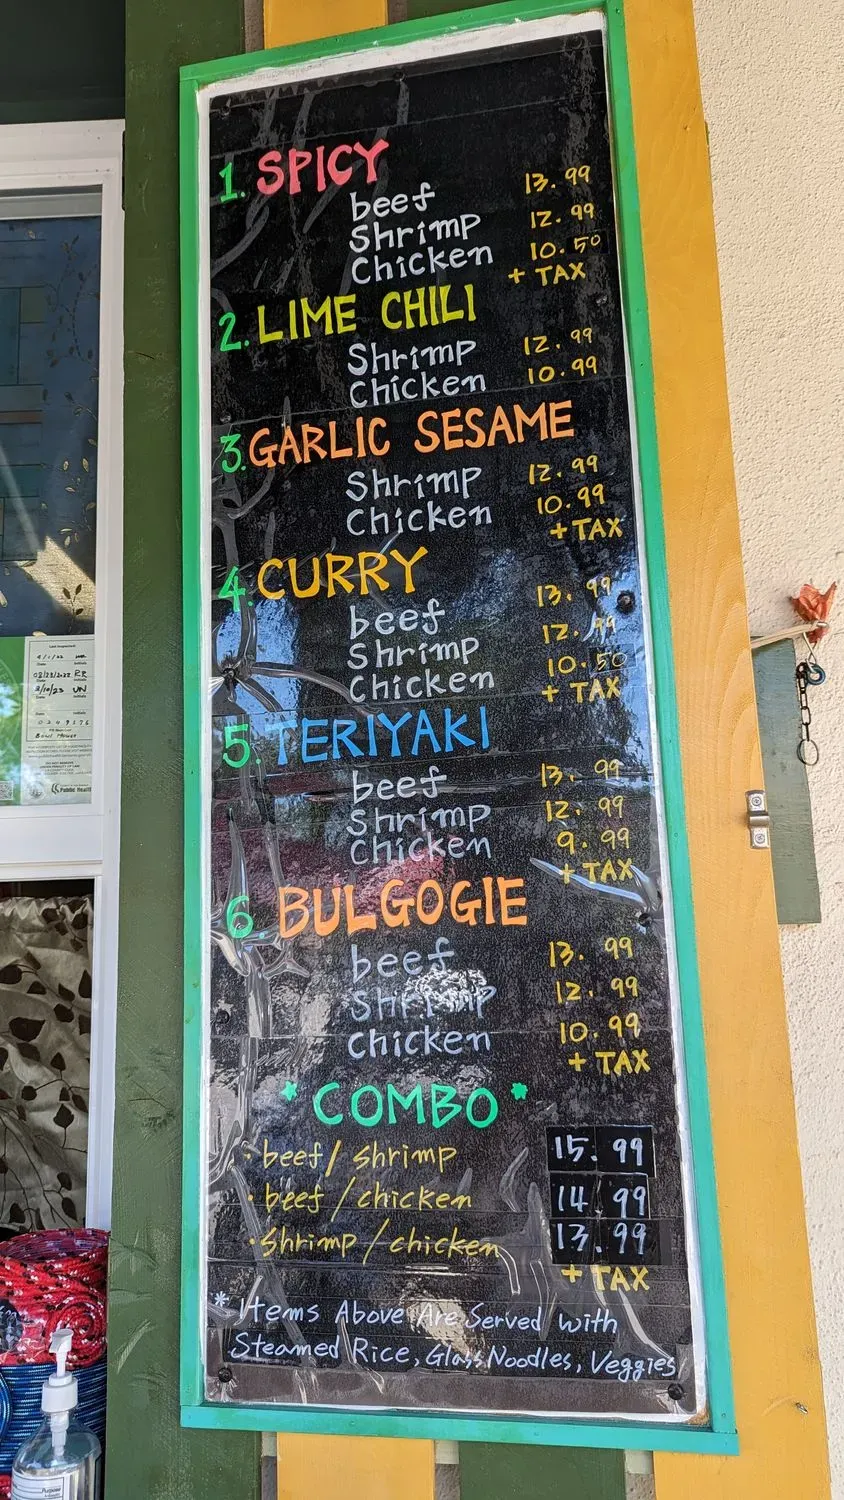 1. SPICY
beef 13.99
Shrimp 12.99
Chicken 10.50
+ TAX
2. LIME CHILI
Shrimp 12.99
Chicken 10.99
3. GARLIC SESAME
Shrimp 12.99
Chicken 10.99
+ TAX
4. CURRY
beef 13.99
Shrimp 12.99
Chicken 10.50
+ TAX
5. TERIYAKI
beef 13.99
Shrimp 12.99
Chicken 9.99
+ TAX
6. BULGOGIE
beef 13.99
Shrimp 12.99
Chicken 10.99
+ TAX
* COMBO *
· beef / shrimp 15.99
· beef / chicken 14.99
· Shrimp / chicken 13.99
+ TAX
* Items Above Are Served with
Steamed Rice, Glass Noodles, Veggies
Last Inspected:
Date Initials
Date Initials
Date Initials
Public Health
Purpose